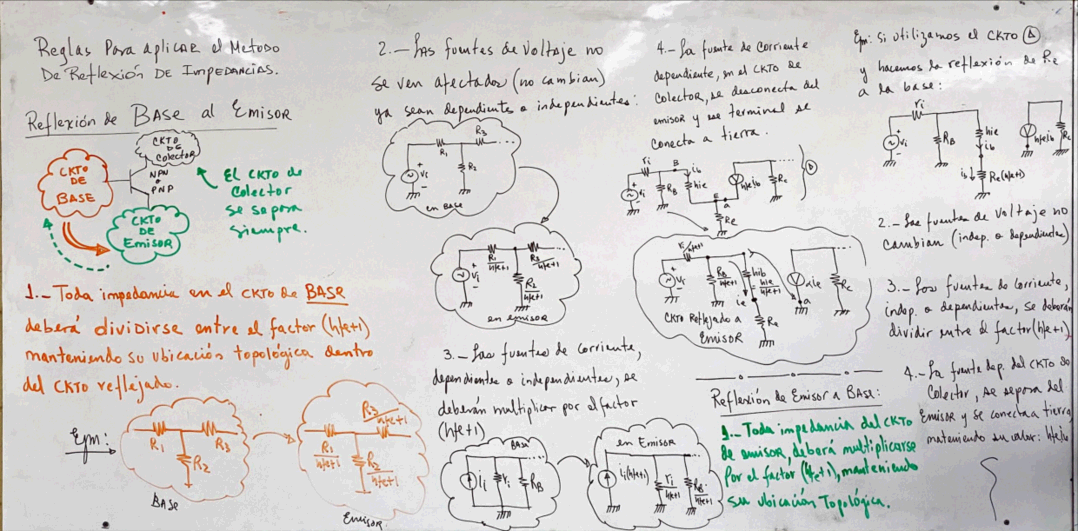 Reglas Para aplicar el Metodo
De Reflexión DE Impedancias.
Reflexión de BASE al Emisor
CKTO
DE
Colector
CKTO
DE
BASE
NPN
o
PNP
CKTO
DE
Emisor
El CKTO de
Colector
se separa
siempre.
1.- Toda impedancia en el CKTO de BASE
deberá dividirse entre el factor (hfe+1)
manteniendo su ubicación topológica dentro
del CKTO reflejado.
Ejm:
R1
R2
R3
BASE
R1/hfe+1
R2/hfe+1
R3/hfe+1
Emisor
2.- Las fuentes de Voltaje no
se ven afectadas (no cambian)
ya sean dependientes o independientes:
Vi
R1
R3
R2
en BASE
Vi
R1/hfe+1
R3/hfe+1
R2/hfe+1
en emisor
3.- Las fuentes de corriente,
dependientes o independientes, se
deberán multiplicar por el factor
(hfe+1)
BASE
ii
ri
RB
en Emisor
ii(hfe+1)
ri/hfe+1
RB/hfe+1
4.- La fuente de corriente
dependiente, en el CKTO de
Colector, se desconecta del
emisor y ese terminal se
conecta a tierra.
ri
Vi
RB
B
ib
hie
E
a
hfeib
Rc
Re
ri/hfe+1
Vi
RB/hfe+1
hib
= hie/hfe+1
ie
Re
αie
a
Rc
CKTO Reflejado a
Emisor
Reflexión de Emisor a Base:
1.- Toda impedancia del CKTO
de emisor, deberá multiplicarse
Por el factor (hfe+1), manteniendo
su ubicación Topológica.
Ejm: Si utilizamos el CKTO
y hacemos la reflexión de Re
a la base:
ri
Vi
RB
hie
ib
ib
Re(hfe+1)
hfeib
Rc
2.- Las fuentes de Voltaje no
cambian (indep. o dependientes)
3.- Las fuentes de corriente,
indep. o dependientes, se deberán
dividir entre el factor (hfe+1)
4.- La fuente dep. del CKTO de
Colector, se separa del
Emisor y se conecta a tierra
manteniendo su valor: hfeib